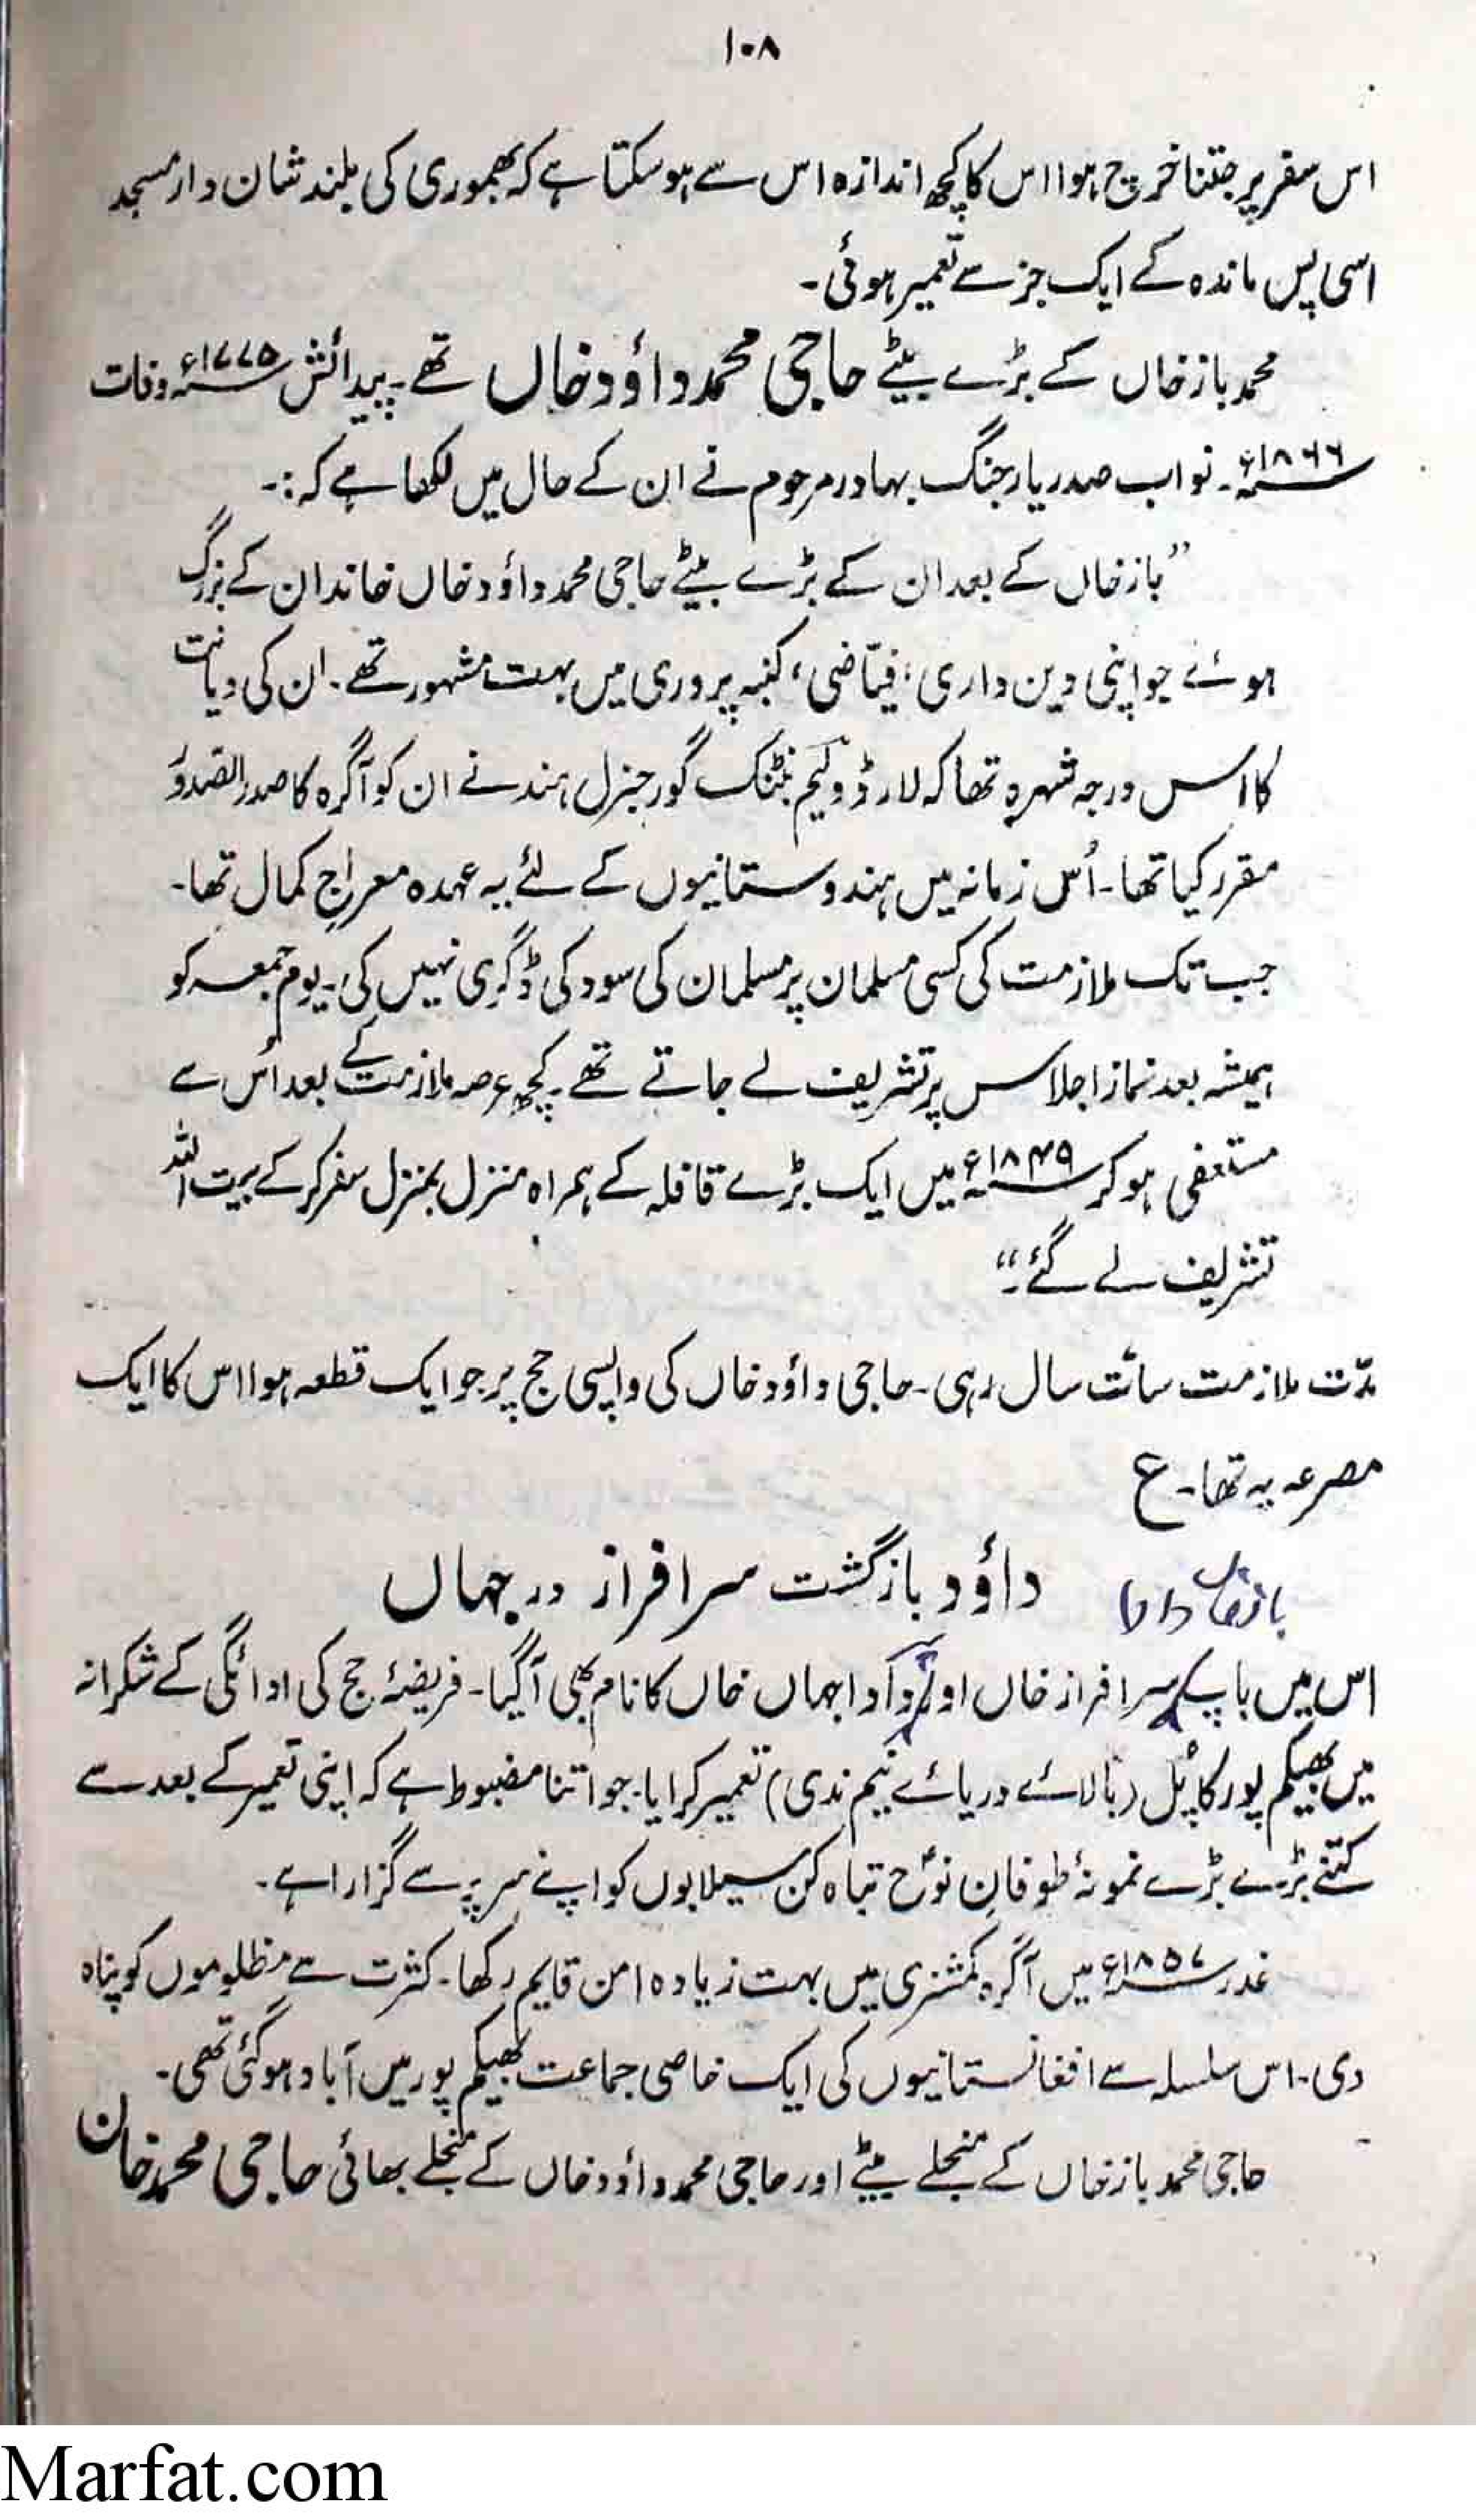 ۱۰۸
اس سفر پر جتنا خرچ ہوا اس کا کچھ اندازہ اس سے ہو سکتا ہے کہ بھموری کی بلند شان دار مسجد
اسی پس ماندہ کے ایک جز سے تعمیر ہوئی۔
محمد باز خاں کے بڑے بیٹے حاجی محمد داؤد خاں تھے۔ پیدائش ۱۷۷۵ء وفات
۱۸۶۶ء۔ نواب صدر یار جنگ بہادر مرحوم نے ان کے حال میں لکھا ہے کہ:۔
”باز خاں کے بعد ان کے بڑے بیٹے حاجی محمد داؤد خاں خاندان کے بزرگ
ہوئے جو اپنی دین داری، فیّاضی، کنبہ پروری میں بہت مشہور تھے۔ ان کی دیانت
کا اس درجہ شہرہ تھا کہ لارڈ ولیم بنٹنک گورجنرل ہند نے ان کو آگرہ کا صدر الصّدور
مقرر کیا تھا۔ اُس زمانہ میں ہندوستانیوں کے لئے یہ عہدہ معراجِ کمال تھا۔
جب تک ملازمت کی کسی مسلمان پر مسلمان کی سود کی ڈگری نہیں کی۔ یوم جمعہ کو
ہمیشہ بعد نماز اجلاس پر تشریف لے جاتے تھے۔ کچھ عرصہ ملازمت کے بعد اُس سے
مستعفی ہو کر ۱۸۴۹ء میں ایک بڑے قافلہ کے ہمراہ منزل بمنزل سفر کر کے بیت اللہ
تشریف لے گئے۔“
مدّت ملازمت سات سال رہی۔ حاجی داؤد خاں کی واپسی حج پر جو ایک قطعہ ہوا اس کا ایک
مصرعہ یہ تھا۔ ع
داؤد باز گشت سرافراز در جہاں
باز خاں دادا
اس میں باپ سرافراز خاں اور دادا جہاں خاں کا نام بھی آگیا۔ فریضۂ حج کی ادائگی کے شکرانہ
میں بھیکم پور کا پُل (بالائے دریائے نیم ندی) تعمیر کرایا۔ جو اتنا مضبوط ہے کہ اپنی تعمیر کے بعد سے
کتنے بڑے بڑے نمونۂ طوفانِ نوحؑ تباہ کن سیلابوں کو اپنے سر پر سے گزارا ہے۔
غدر ۱۸۵۷ء میں آگرہ کمشنری میں بہت زیادہ امن قایم رکھا۔ کثرت سے مظلوموں کو پناہ
دی۔ اس سلسلہ سے افغانستانیوں کی ایک خاصی جماعت بھیکم پور میں آباد ہوگئی تھی۔
حاجی محمد باز خاں کے منجھلے بیٹے اور حاجی محمد داؤد خاں کے منجھلے بھائی حاجی محمد خان
Marfat.com